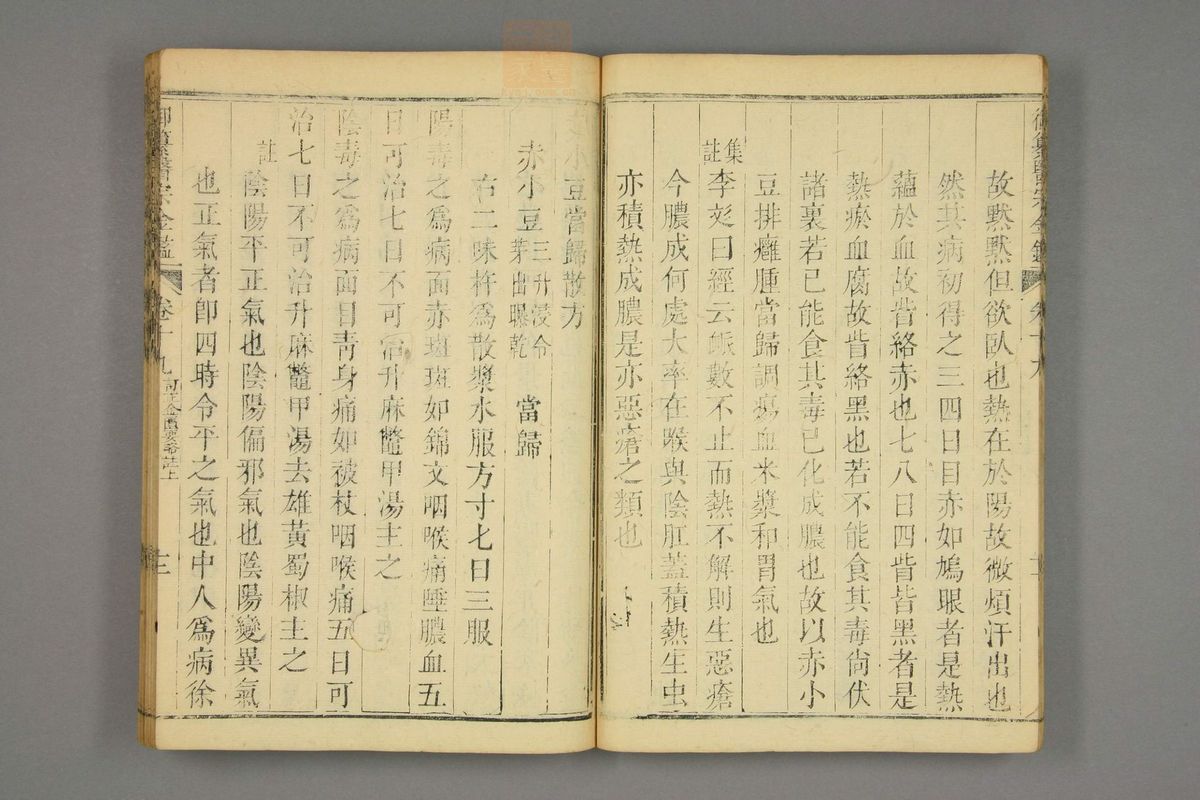 故默默但欲臥也熱在於陽故微煩汗出也
然其病初得之三四日目赤如鳩眼者是熱
蘊於血故眥絡赤也七八日四眥皆黑者是
熱瘀血腐故眥絡黑也若不能食其毒尙伏
諸裏若已能食其毒已化成膿也故以赤小
豆排癰腫當歸調瘍血米漿和胃氣也
集註李彣曰經云脈數不止而熱不解則生惡瘡
今膿成何處大率在喉與陰肛蓋積熱生虫
亦積熱成膿是亦惡瘡之類也
赤小豆當歸散方
赤小豆三升浸令芽出曝乾 當歸
右二味杵爲散漿水服方寸匕日三服
陽毒之爲病面赤斑斑如錦文咽喉痛唾膿血五
日可治七日不可治升麻鼈甲湯主之
陰毒之爲病面目靑身痛如被杖咽喉痛五日可
治七日不可治升麻鼈甲湯去雄黃蜀椒主之
註陰陽平正氣也陰陽偏邪氣也陰陽變異氣
也正氣者卽四時令平之氣也中人爲病徐
御纂醫宗金鑑 卷十九 訂正金匱要畧註上